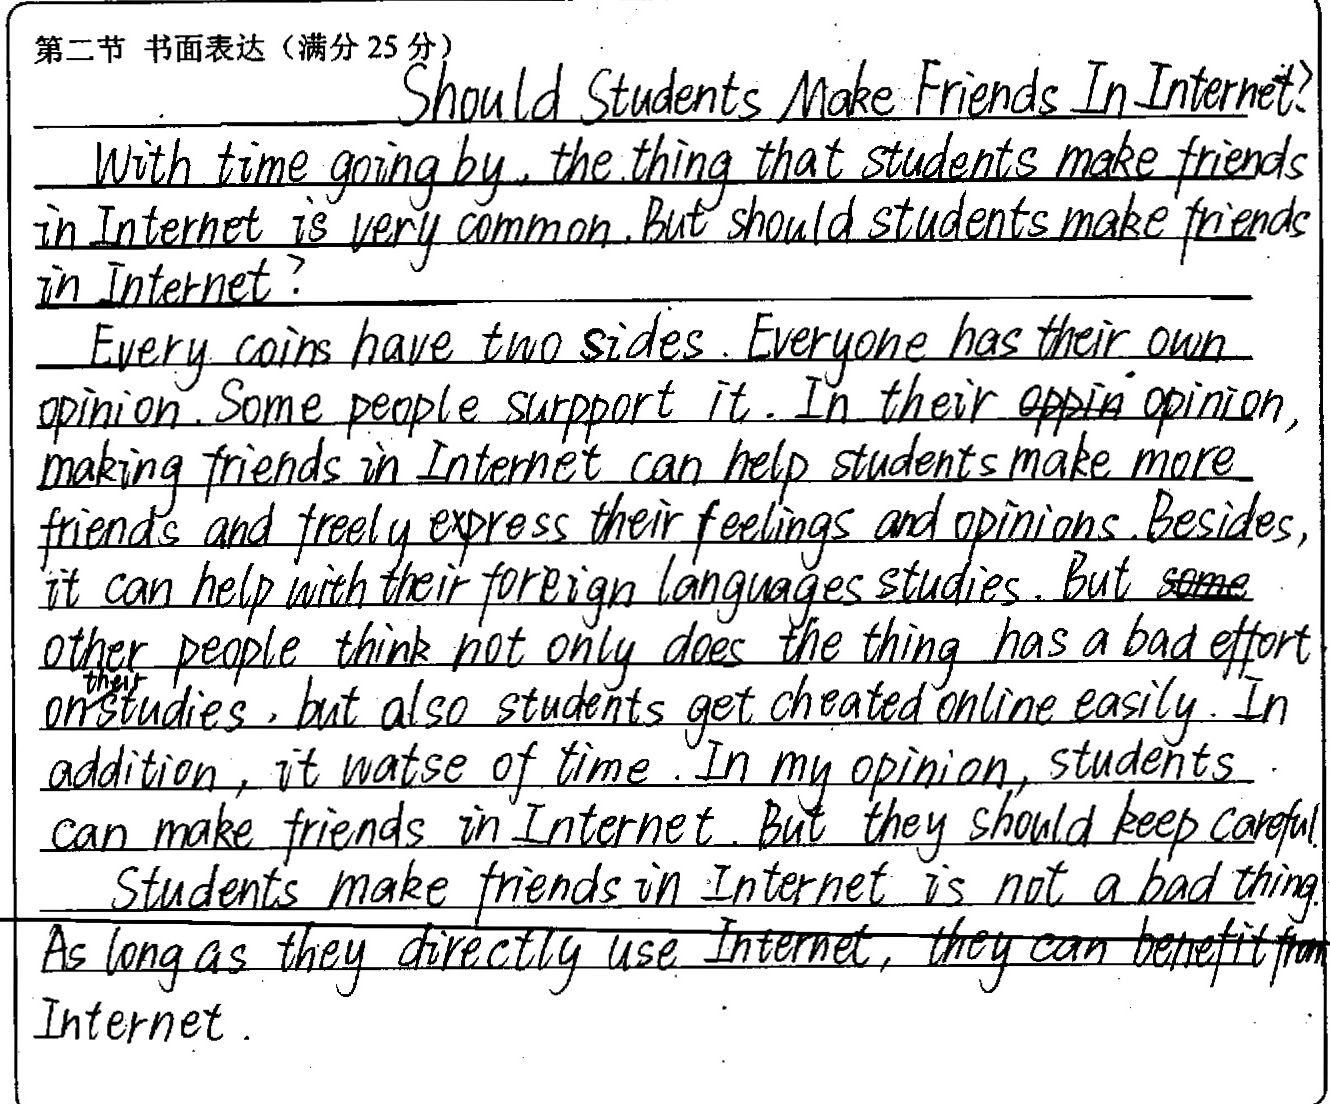 第二节 书面表达（满分 25 分）
Should Students Make Friends In Internet?
With time going by, the thing that students make friends
in Internet is very common. But should students make friends
in Internet?
Every coins have two sides. Everyone has their own
opinion. Some people surpport it. In their oppin opinion,
making friends in Internet can help students make more
friends and freely express their feelings and opinions. Besides,
it can help with their foreign languages studies. But some
other people think not only does the thing has a bad effort
on their studies, but also students get cheated online easily. In
addition, it watse of time. In my opinion, students
can make friends in Internet. But they should keep careful.
Students make friends in Internet is not a bad thing.
As long as they directly use Internet, they can benefit from
Internet.